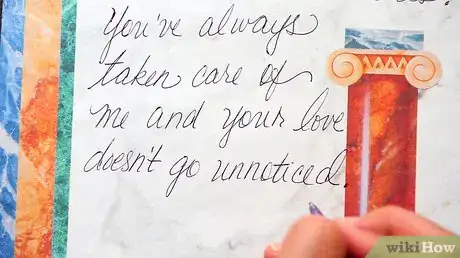 You've always
taken care of
me and your love
doesn't go unnoticed.
wikiHow